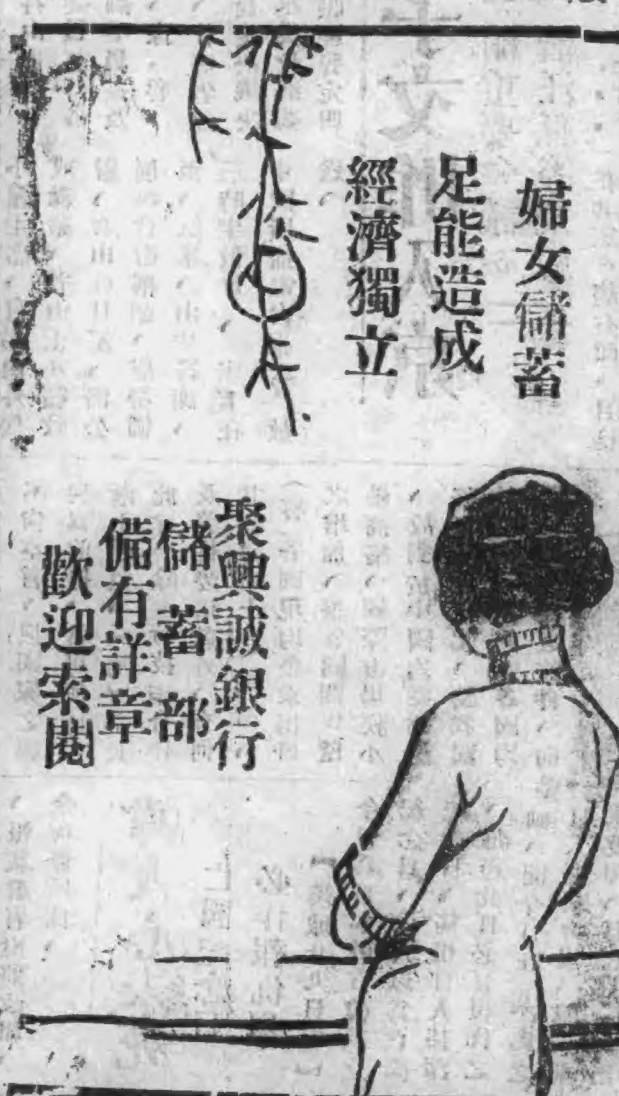 婦女儲蓄
足能造成
經濟獨立
聚興誠銀行
儲蓄部
備有詳章
歡迎索閱